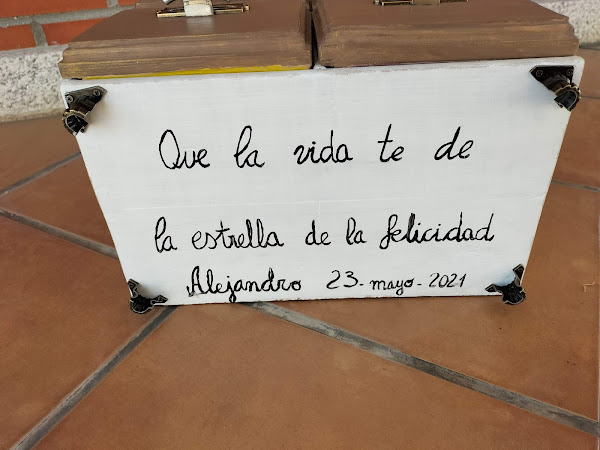 Que la vida te de
la estrella de la felicidad
Alejandro 23-mayo-2021